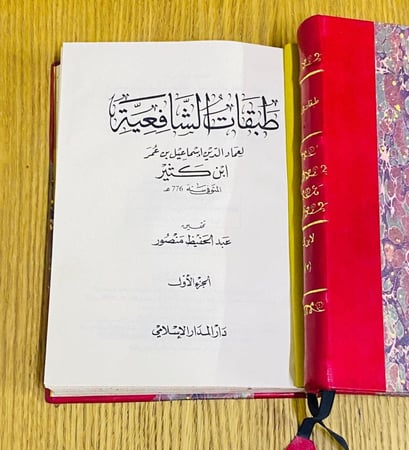 طبقات الشافعية
لعماد الدين إسماعيل بن عمر
ابن كثير
المتوفى سنة 776 هـ
تحقيق
عبد الحفيظ منصور
الجزء الأول
دار المدار الإسلامي
طبقات